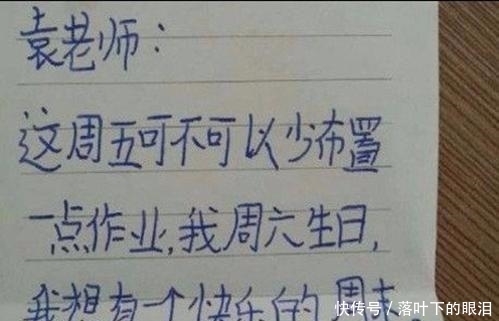 袁老师：
这周五可不可以少布置
一点作业，我周六生日，
我想有一个快乐的周末
快传号／落叶下的眼泪